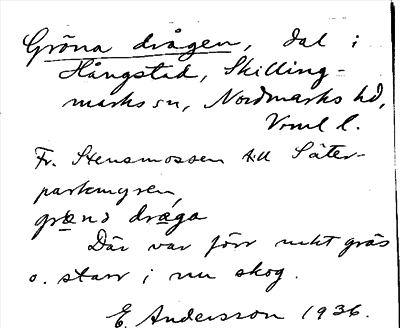 Gröna drågen, dal i
Hångstad, Skilling-
marks sn, Nordmarks hd,
Vrml l.
Fr. Stensmossen till Säter-
parkmyren,
grœnɔ dræga
Där var förr mkt gräs
o. starr i nu skog.
E. Andersson 1936.